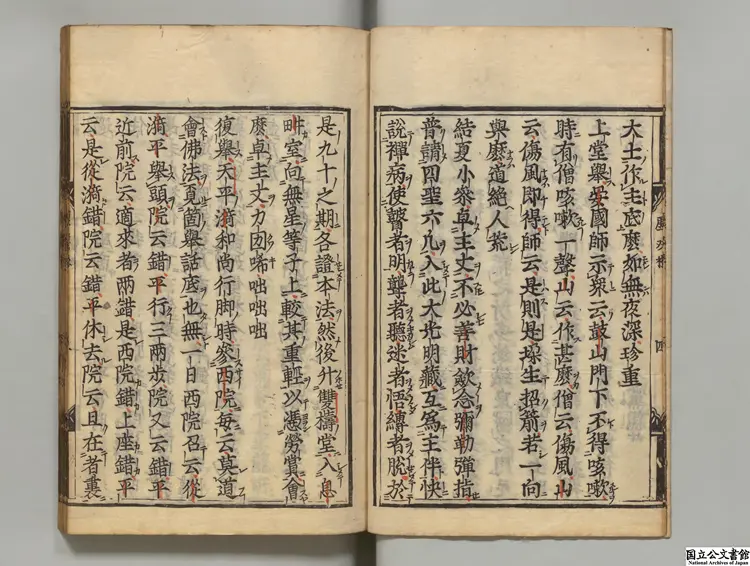 大士作主底麼如無夜深珍重
上堂舉安國師示衆云鼓山門下不得咳嗽
時有僧咳嗽一聲山云作甚麼僧云傷風山
云傷風即得師云是則是垜生招箭若一向
與麼道絶人荒
結夏小參卓主丈不必善財斂念彌勒彈指
普請四聖六凡入此大光明藏互爲主伴快
說禪病使瞽者明聾者聽迷者悟縛者脫於
是九十之期各證本法然後升雙檮堂入息
畊室向無星等子上較其重輕以憑勞賞會
麼卓主丈力囡唏咄咄咄
復舉天平漪和尚行脚時參西院每云莫道
會佛法覓箇舉話底也無一日西院召云從
漪平舉頭院云錯平行三兩步院又云錯平
近前院云適來者兩錯是西院錯上座錯平
云是從漪錯院云錯平休去院云且在者裏
四
国立公文書館
National Archives of Japan